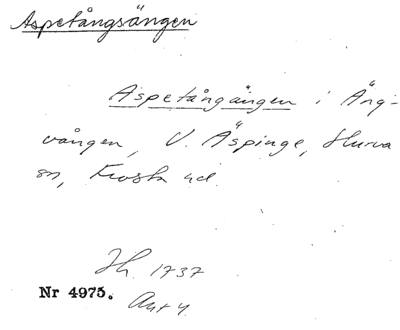 Aspetångsängen
Aspetångängen i Äng-
vången, V. Äspinge, Hurva
sn, Frosta hd.
Lh. 1737
Nr 4975.
Akt 4